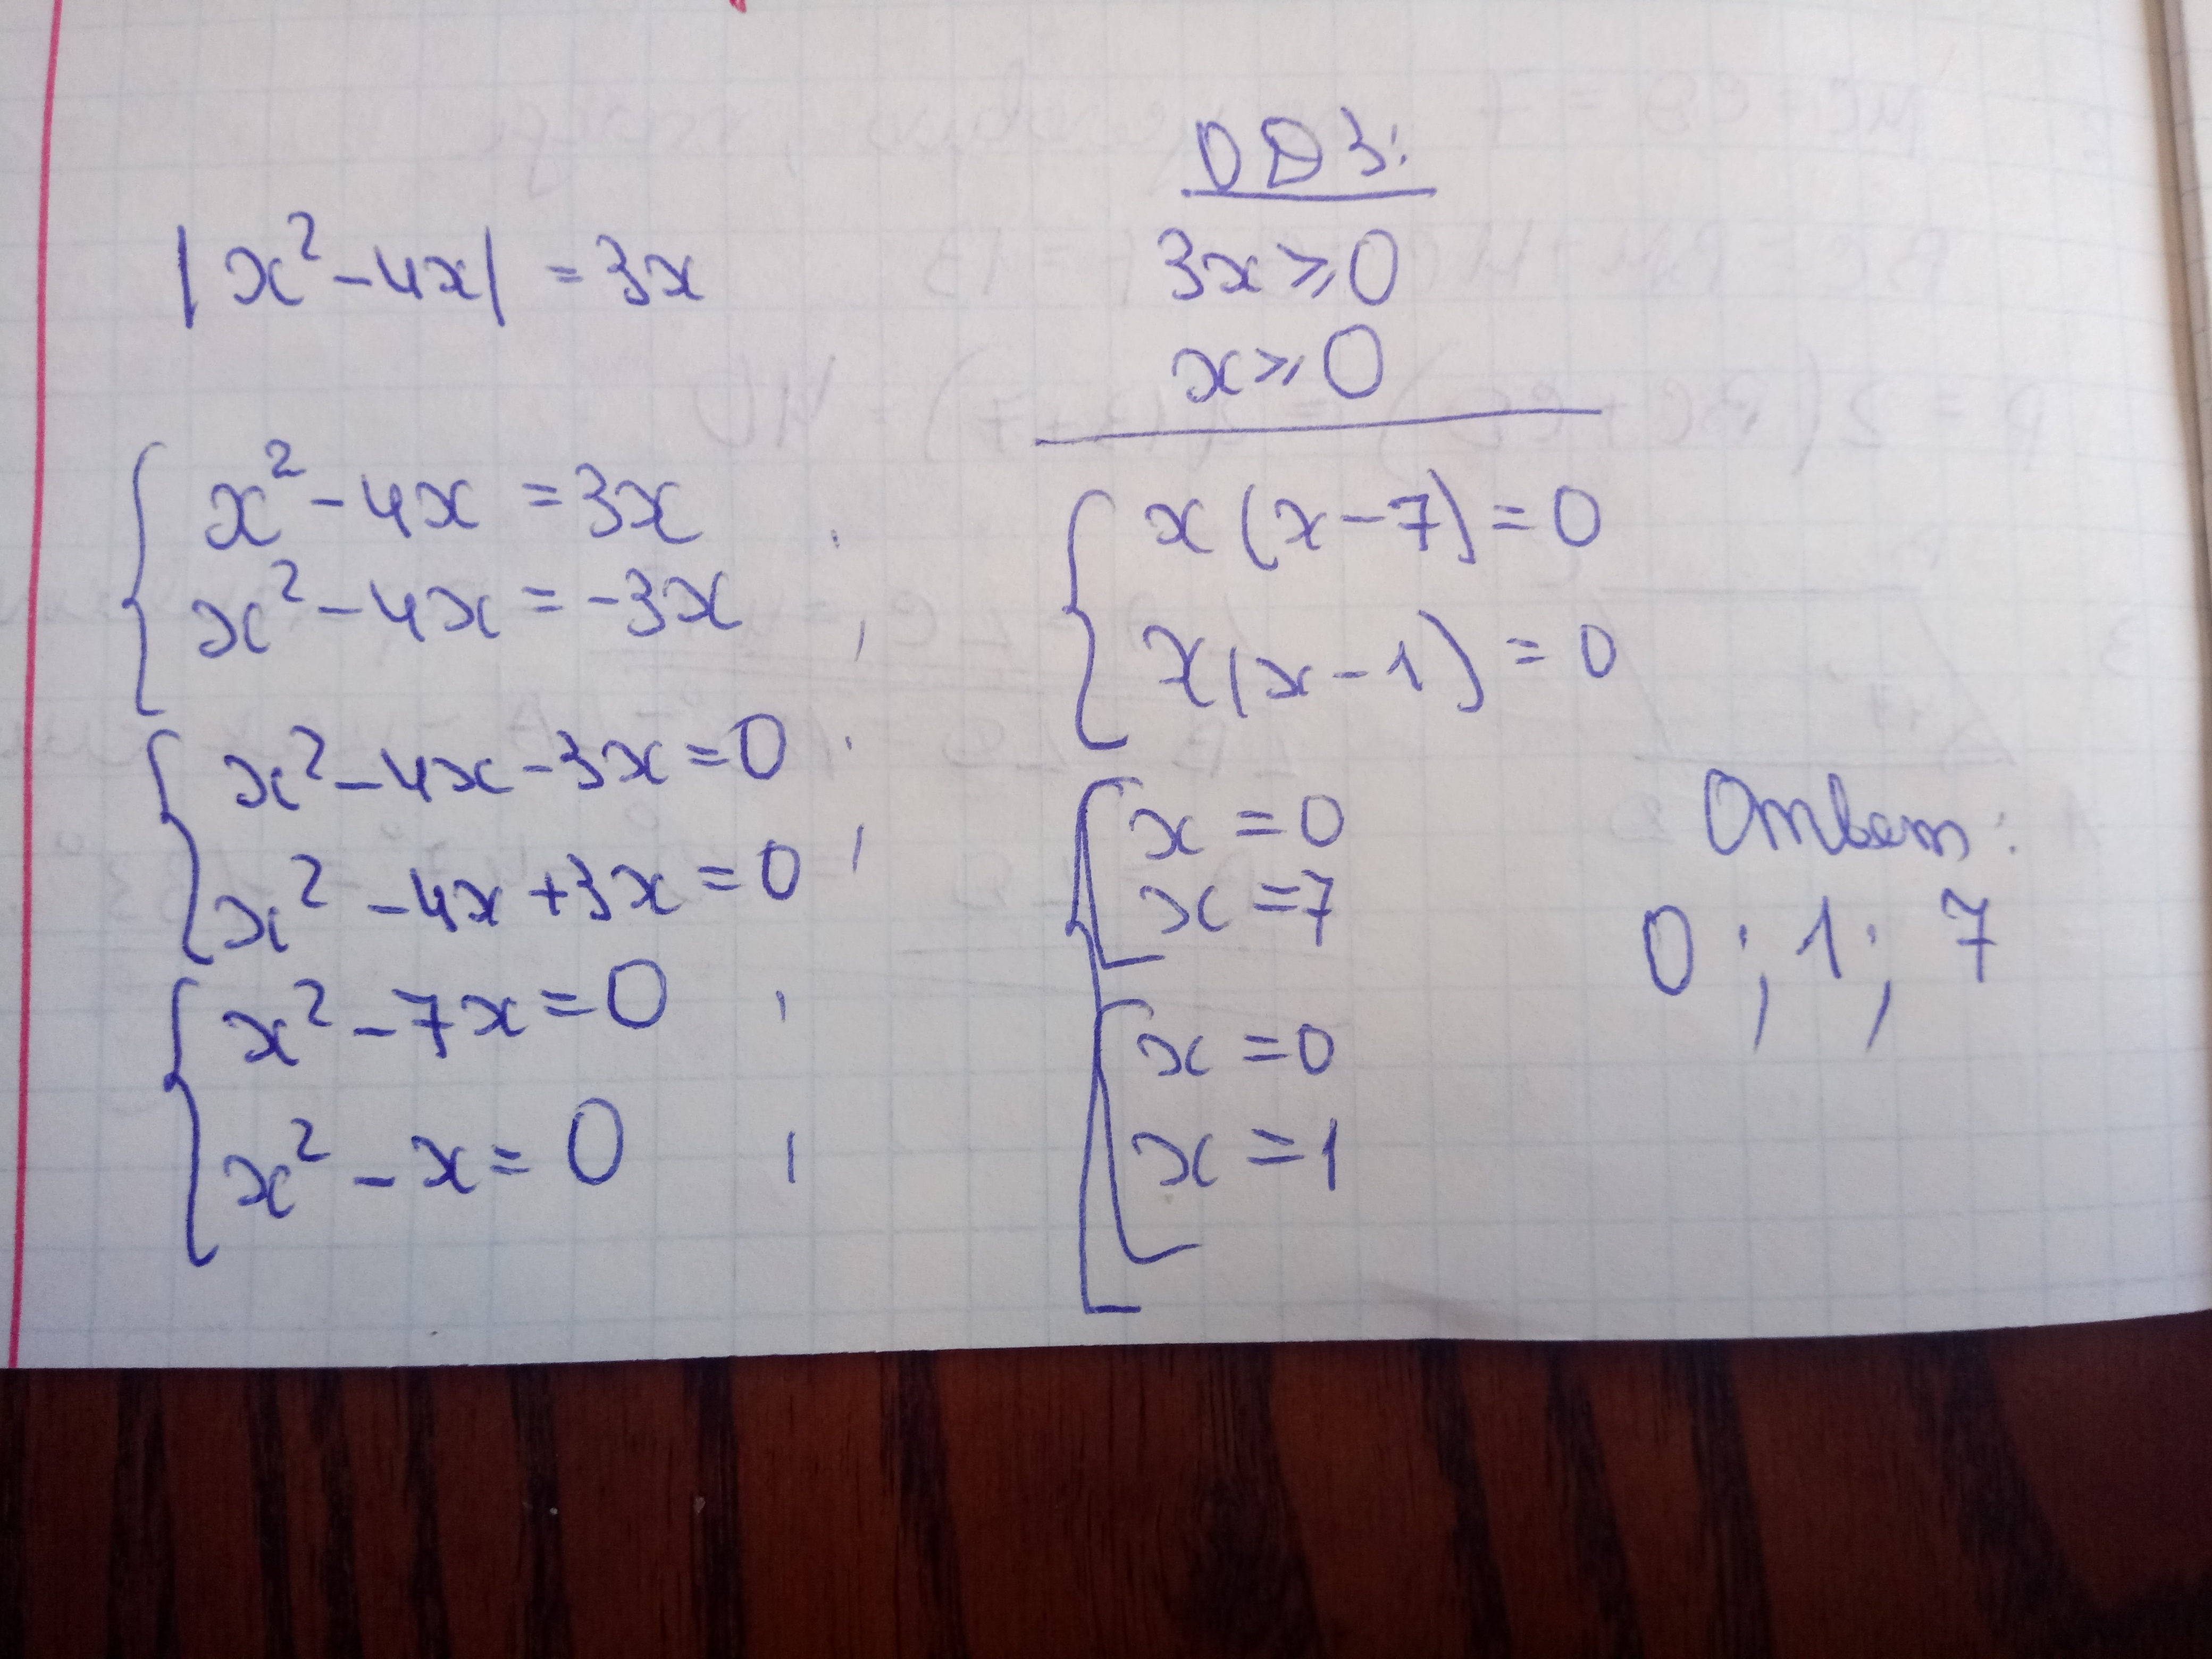 |x²-4x| = 3x
{ x²-4x = 3x
x²-4x = -3x
{ x²-4x-3x=0
x²-4x+3x=0
{ x²-7x=0
x²-x=0
ОДЗ:
3x⩾0
x⩾0
{ x(x-7)=0
x(x-1)=0
[ x=0
x=7
[ x=0
x=1
Ответ:
0; 1; 7